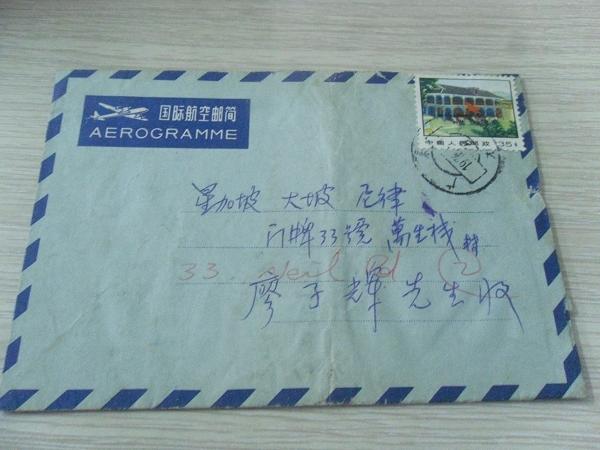 国际航空邮简
AEROGRAMME
中国人民邮政 35分
星加坡 大坡 尼律
门牌33號 萬生栈 轉
33 Neil Rd (2)
廖子輝先生收